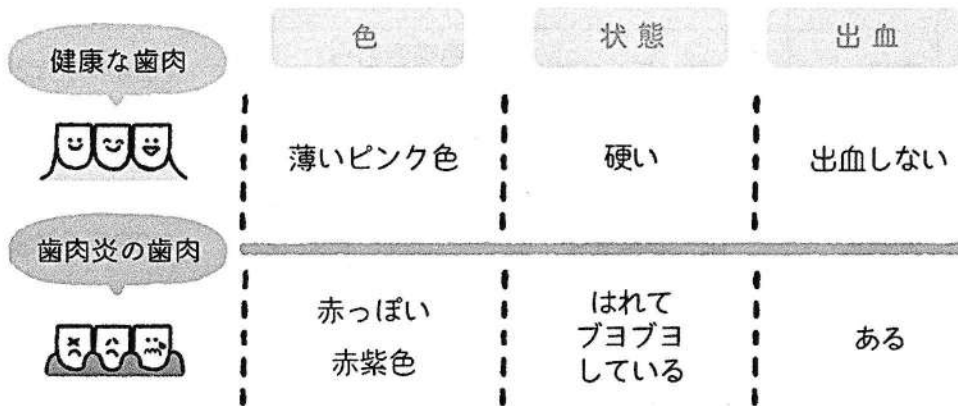 色
状態
出血
健康な歯肉
薄いピンク色
硬い
出血しない
歯肉炎の歯肉
赤っぽい
赤紫色
はれて
ブヨブヨ
している
ある